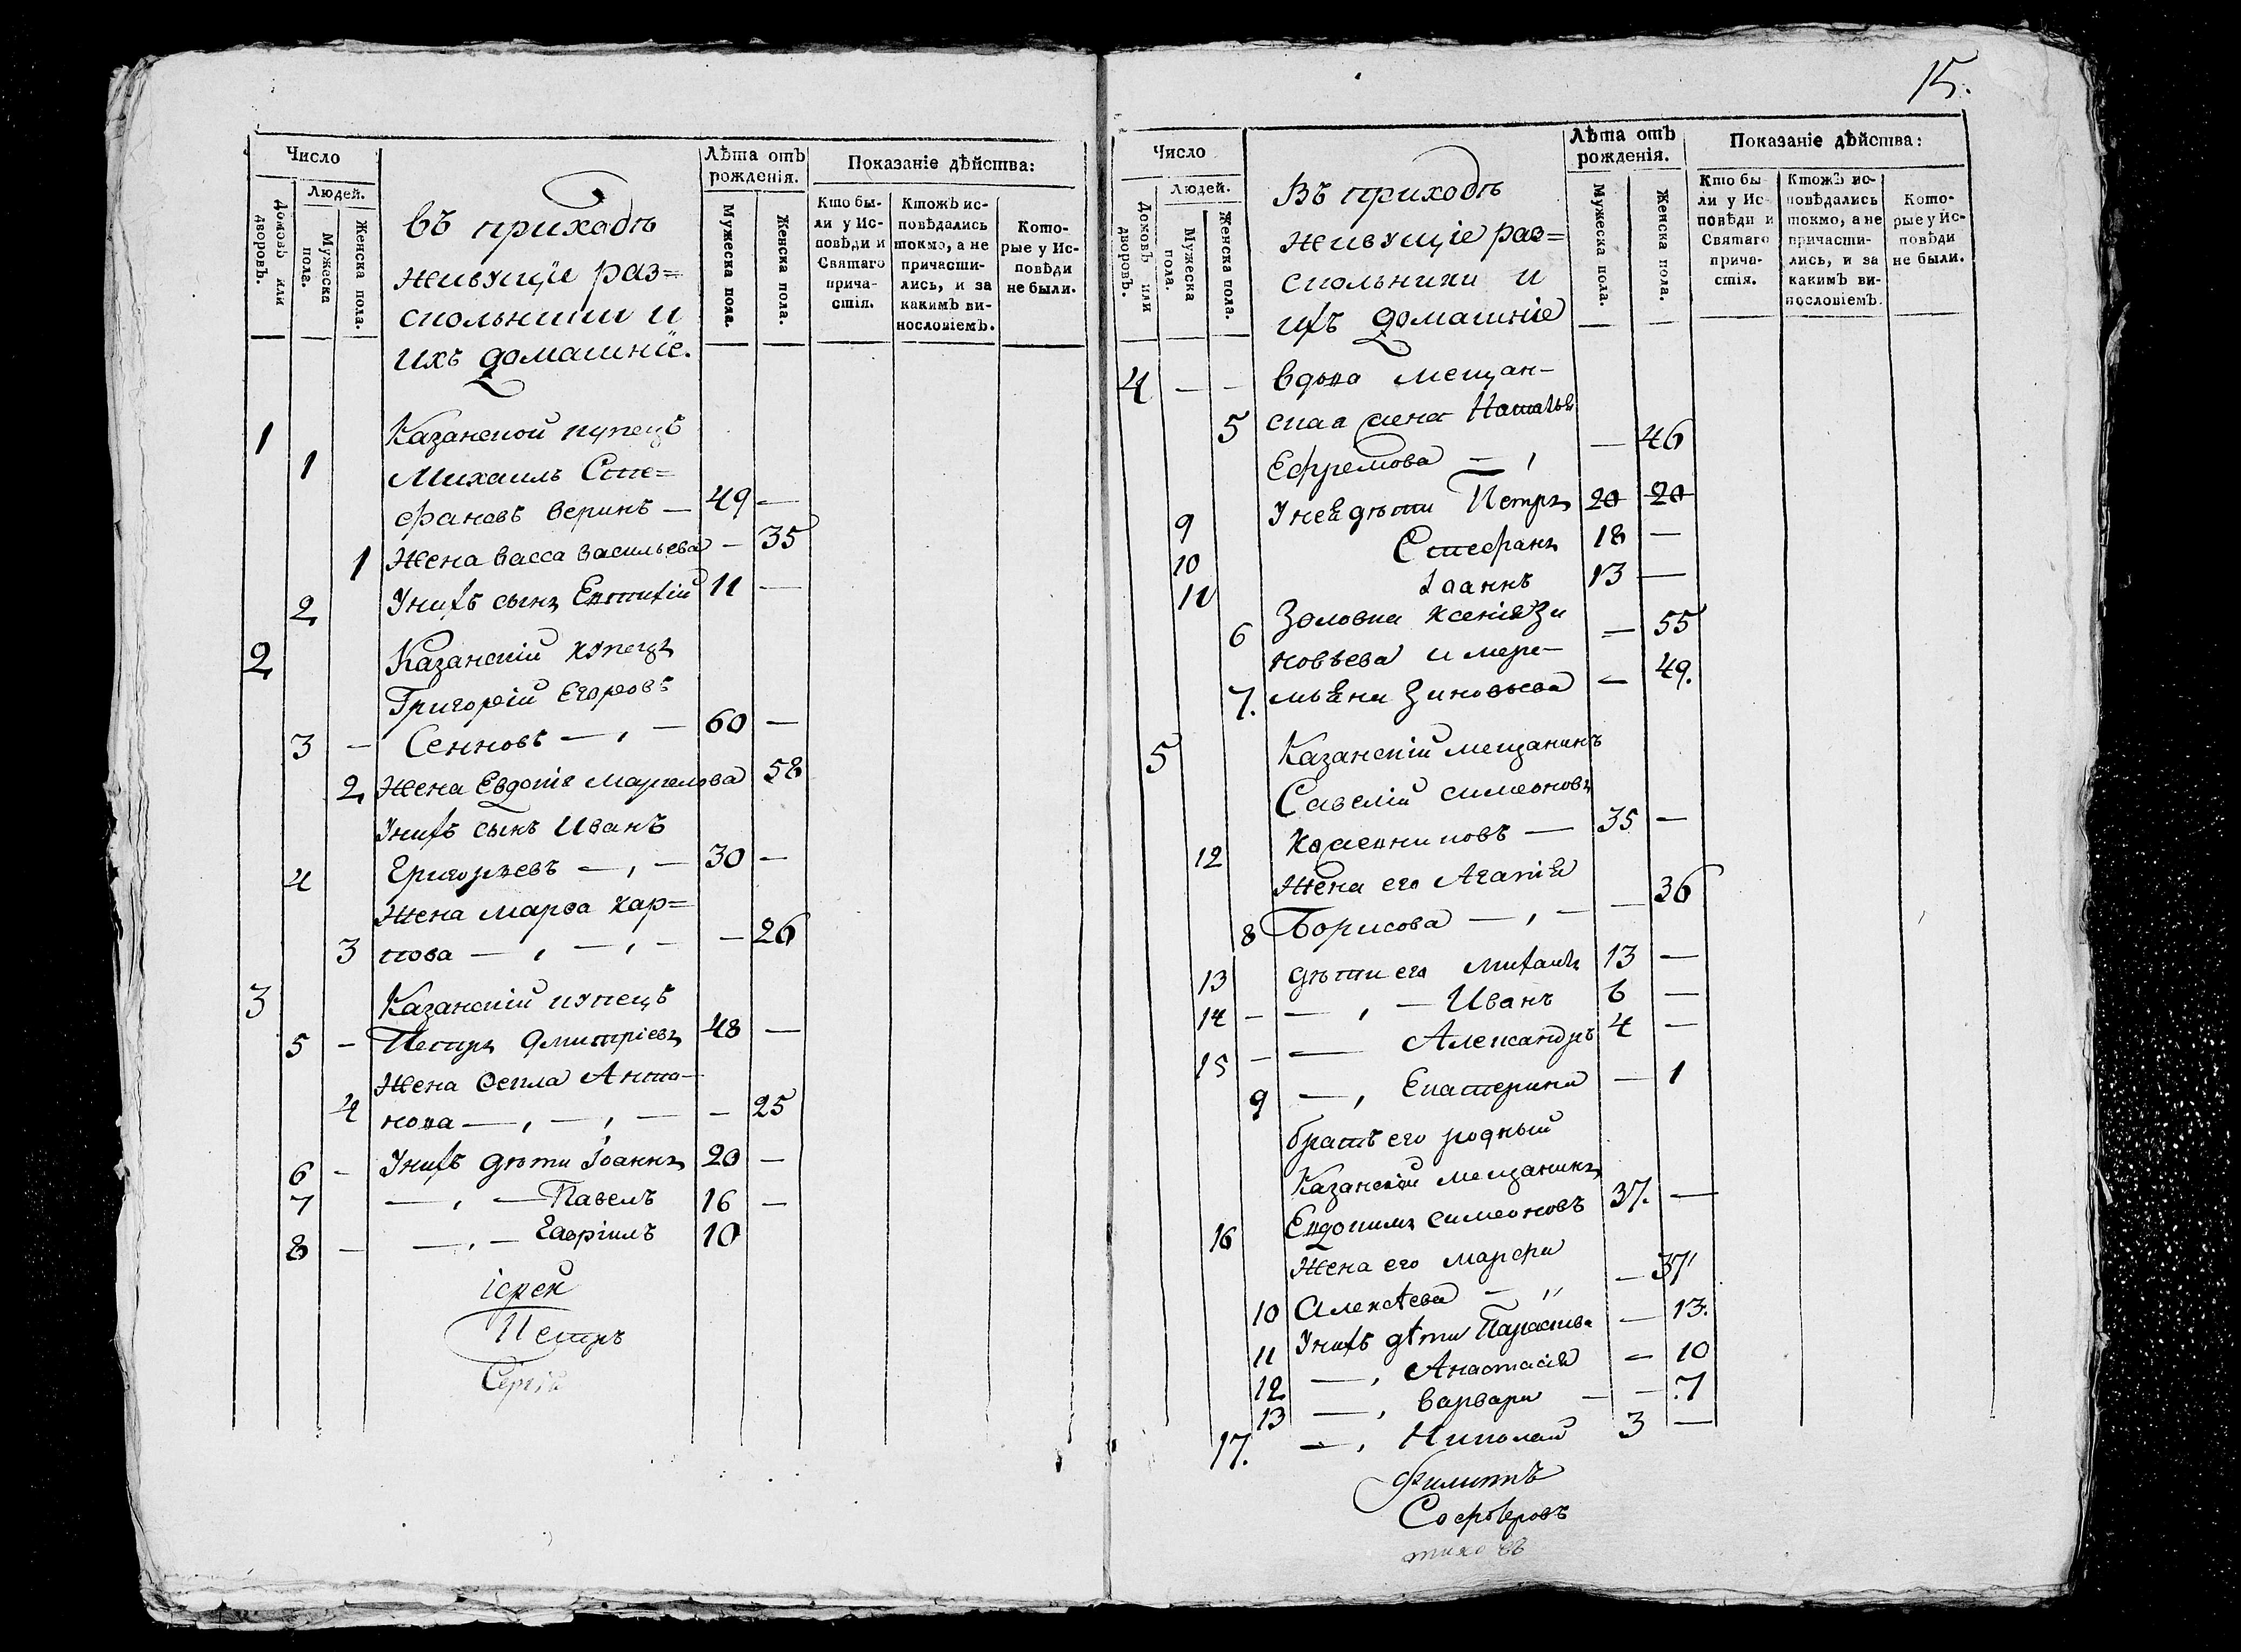 15.
Число
Лѣта отъ рожденія.
Показаніе дѣйства:
Людей.
Домовъ или дворовъ.
Мужеска пола.
Женска пола.
Мужеска пола.
Женска пола.
Кто были у Исповѣди и Святаго причастія.
Ктожъ исповѣдались токмо, а не причастились, и за какимъ винословіемъ.
Которые у Исповѣди не были.
въ приходѣ
живущіе раз=
скольники и
ихъ домашніе.
1 Казанской купецъ
1 Михаилъ Сте=
фановъ Веринъ — 49 —
1 Жена Васса Васильева — 35
2 У нихъ сынъ Евтихій 11 —
2 Казанскій купецъ
Григорій Егоровъ
3 — Сенновъ — , — 60 —
2 Жена Евдокія Маркелова 58
У нихъ сынъ Иванъ
4 Григорьевъ — , — 30 —
Жена Марѳа Кар=
3 пова — , — , — — 26
3 Казанскій купецъ
5 — Петръ Дмитріевъ 48 —
Жена Ѳекла Анто-
4 нова — , — , — — 25
6 — У нихъ дѣти Іоаннъ 20 —
7 — , — Павелъ 16 —
8 — — , — Гавріилъ 10
іерей
Петръ
Сергіе
Число
Лѣта отъ рожденія.
Показаніе дѣйства:
Людей.
Домовъ или дворовъ.
Мужеска пола.
Женска пола.
Мужеска пола.
Женска пола.
Кто были у Исповѣди и Святаго причастія.
Ктожъ исповѣдались токмо, а не причастились, и за какимъ винословіемъ.
Которые у Исповѣди не были.
Въ приходѣ
живущіе рас=
скольники и
ихъ домашніе
4 — — вдова мещан-
5 ская жена Наталья
Ефремова — , — 46
9 У нея дѣти Петръ 20 20
10 Стефанъ 18 —
11 Іоаннъ 13 —
6 Золовки Ксенія Зи — 55
новьева и мере-
7. мьяна Зиновьева — 49.
5 Казанскій мещанинъ
Савелій Симеоновъ
12 — 35 —
Жена его Агапія
8 Борисова — , — — 36
13 дѣти его Михаилъ 13 —
14 — — , — Иванъ 6 —
15 — — Александръ 4 —
9 — , Екатерина — 1
братъ его родный
Казанскій мещанинъ
16 Евдокимъ Симеоновъ 37. —
Жена его Марфа
10 Алексѣева — ,, — 37
11 У нихъ дѣти Параскева — 13.
12 — , Анастасія — 10
13 — , Варвара — — 7
17. — , Николай 3 —
Филиппъ